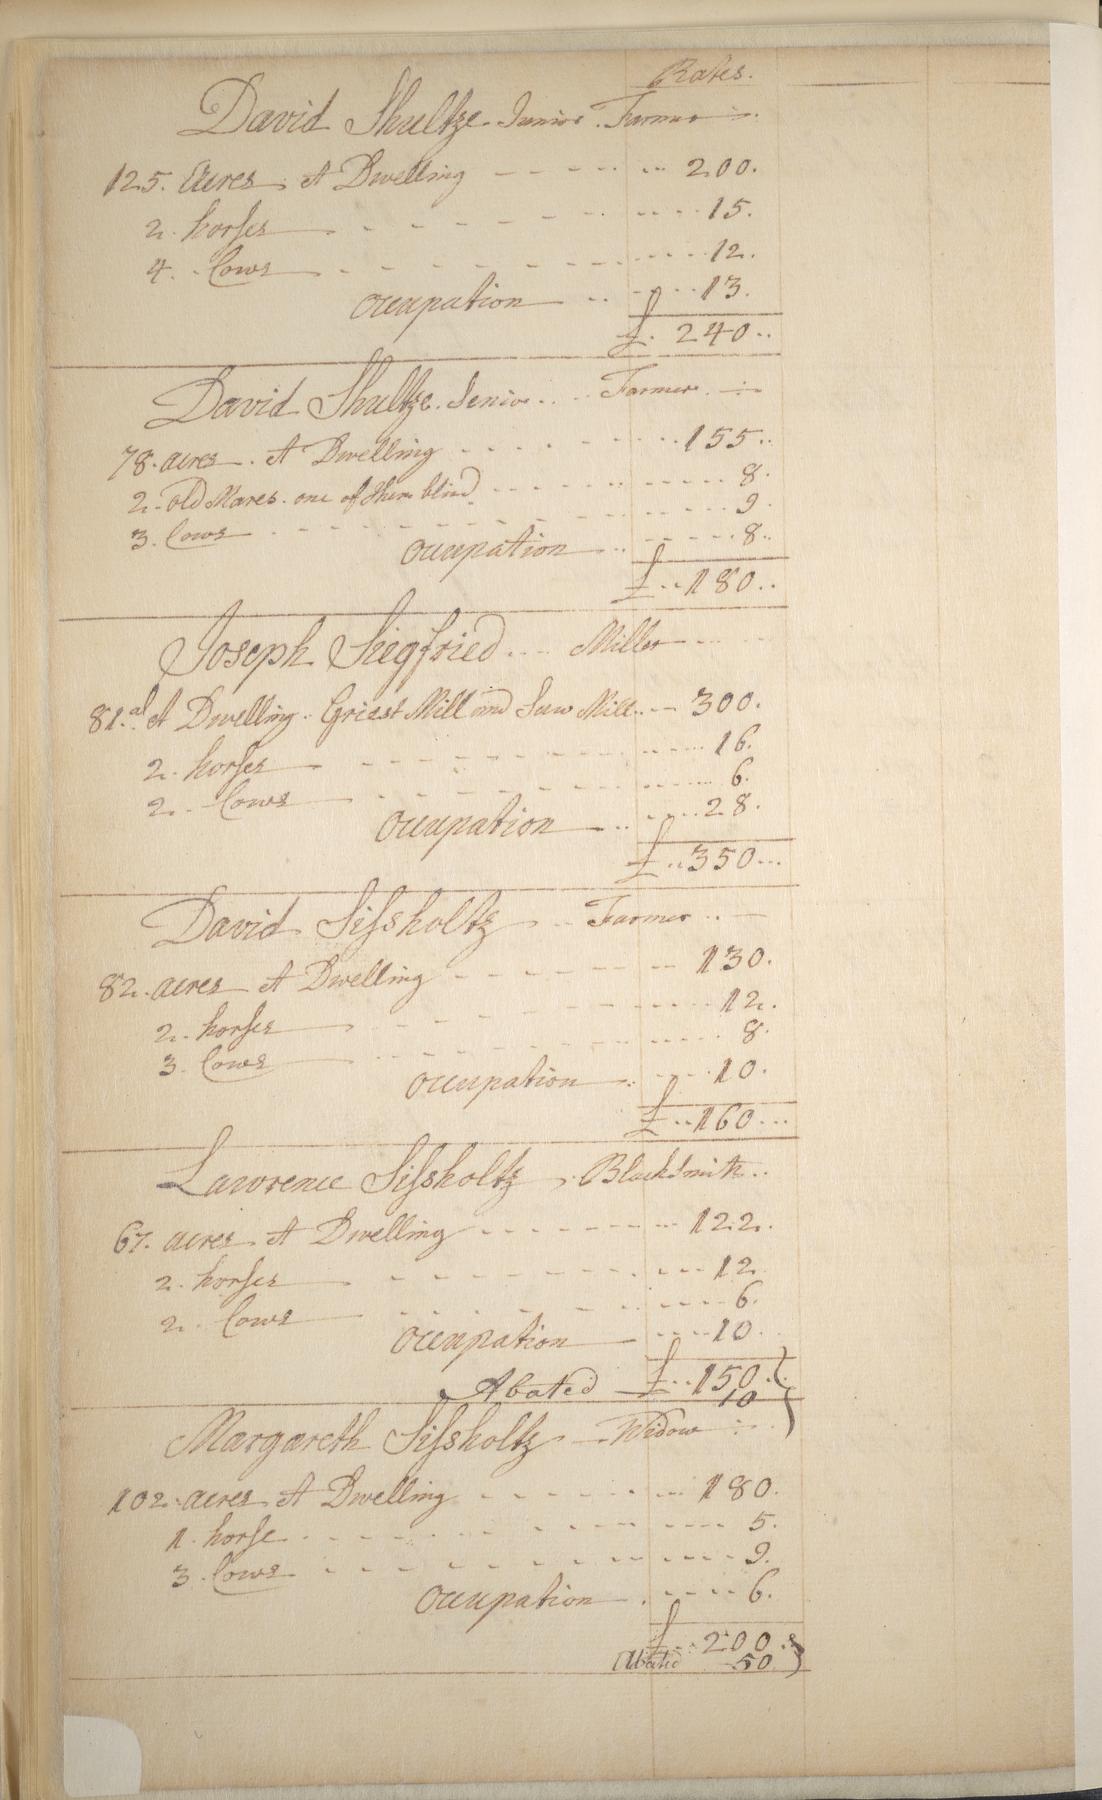 Rates.
David Shultze Junior. Farmer
125. acres. A Dwelling 200.
2. horses 15.
4. Cows 12.
Occupation 13.
£. 240..
David Shultze. Senior.. Farmer.
78. acres. A Dwelling 155..
2. old Mares. one of them blind 8.
3. Cows 9.
Occupation 8..
£..180..
Joseph Siegfried.... Miller
81. A Dwelling. Griest Mill and Saw Mill.. 300.
2. horses 16.
2. Cows 6.
Occupation 28.
£..350...
David Sissholtz Farmer..
82. acres A Dwelling 130.
2. horses 12.
3. Cows 8.
Occupation 10.
£..160...
Lawrence Sissholtz. BlackSmith..
67. acres A Dwelling 122.
2. horses 12
2. Cows 6.
Occupation 10.
£..150..
Abated 10
Margareth Sissholtz Widow
102. acres A Dwelling 180.
1. horse 5.
3. Cows 9.
Occupation 6.
£..200.
Abated 50